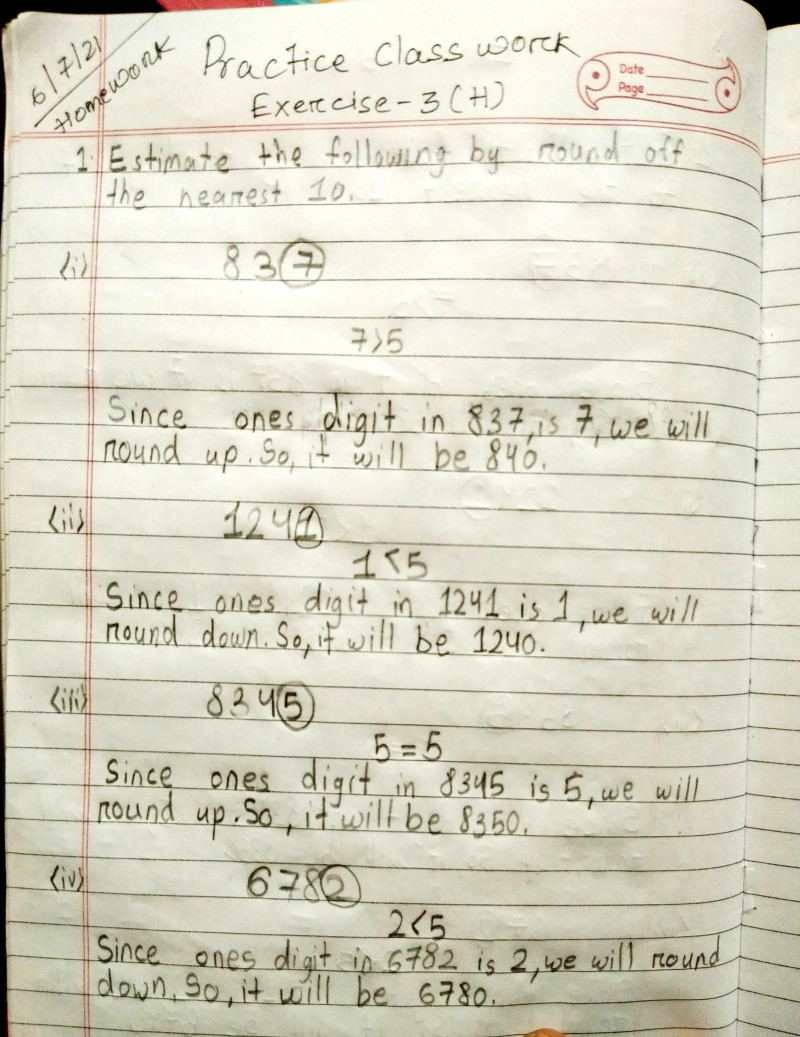 6/7/21
Homework
Practice Class worck
Exercise-3(H)
Date
Page
1. Estimate the following by round off
the nearest 10.
(i) 837
7>5
Since ones digit in 837, is 7, we will
round up. So, it will be 840.
(ii) 1241
1<5
Since ones digit in 1241 is 1, we will
round down. So, it will be 1240.
(iii) 8345
5=5
Since ones digit in 8345 is 5, we will
round up. So, it will be 8350.
(iv) 6782
2<5
Since ones digit in 6782 is 2, we will round
down. So, it will be 6780.